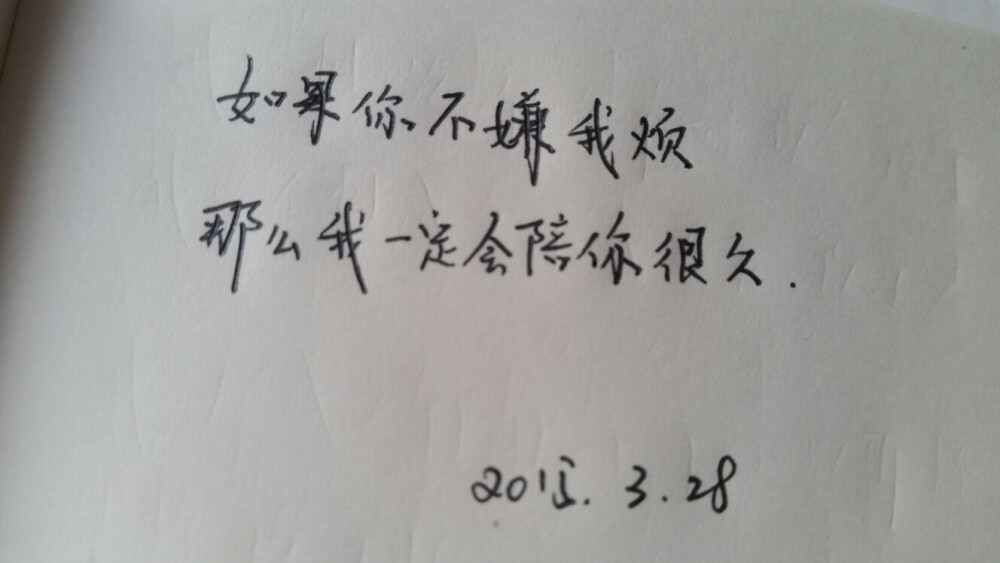 如果你不嫌我烦
那么我一定会陪你很久.
2015.3.28